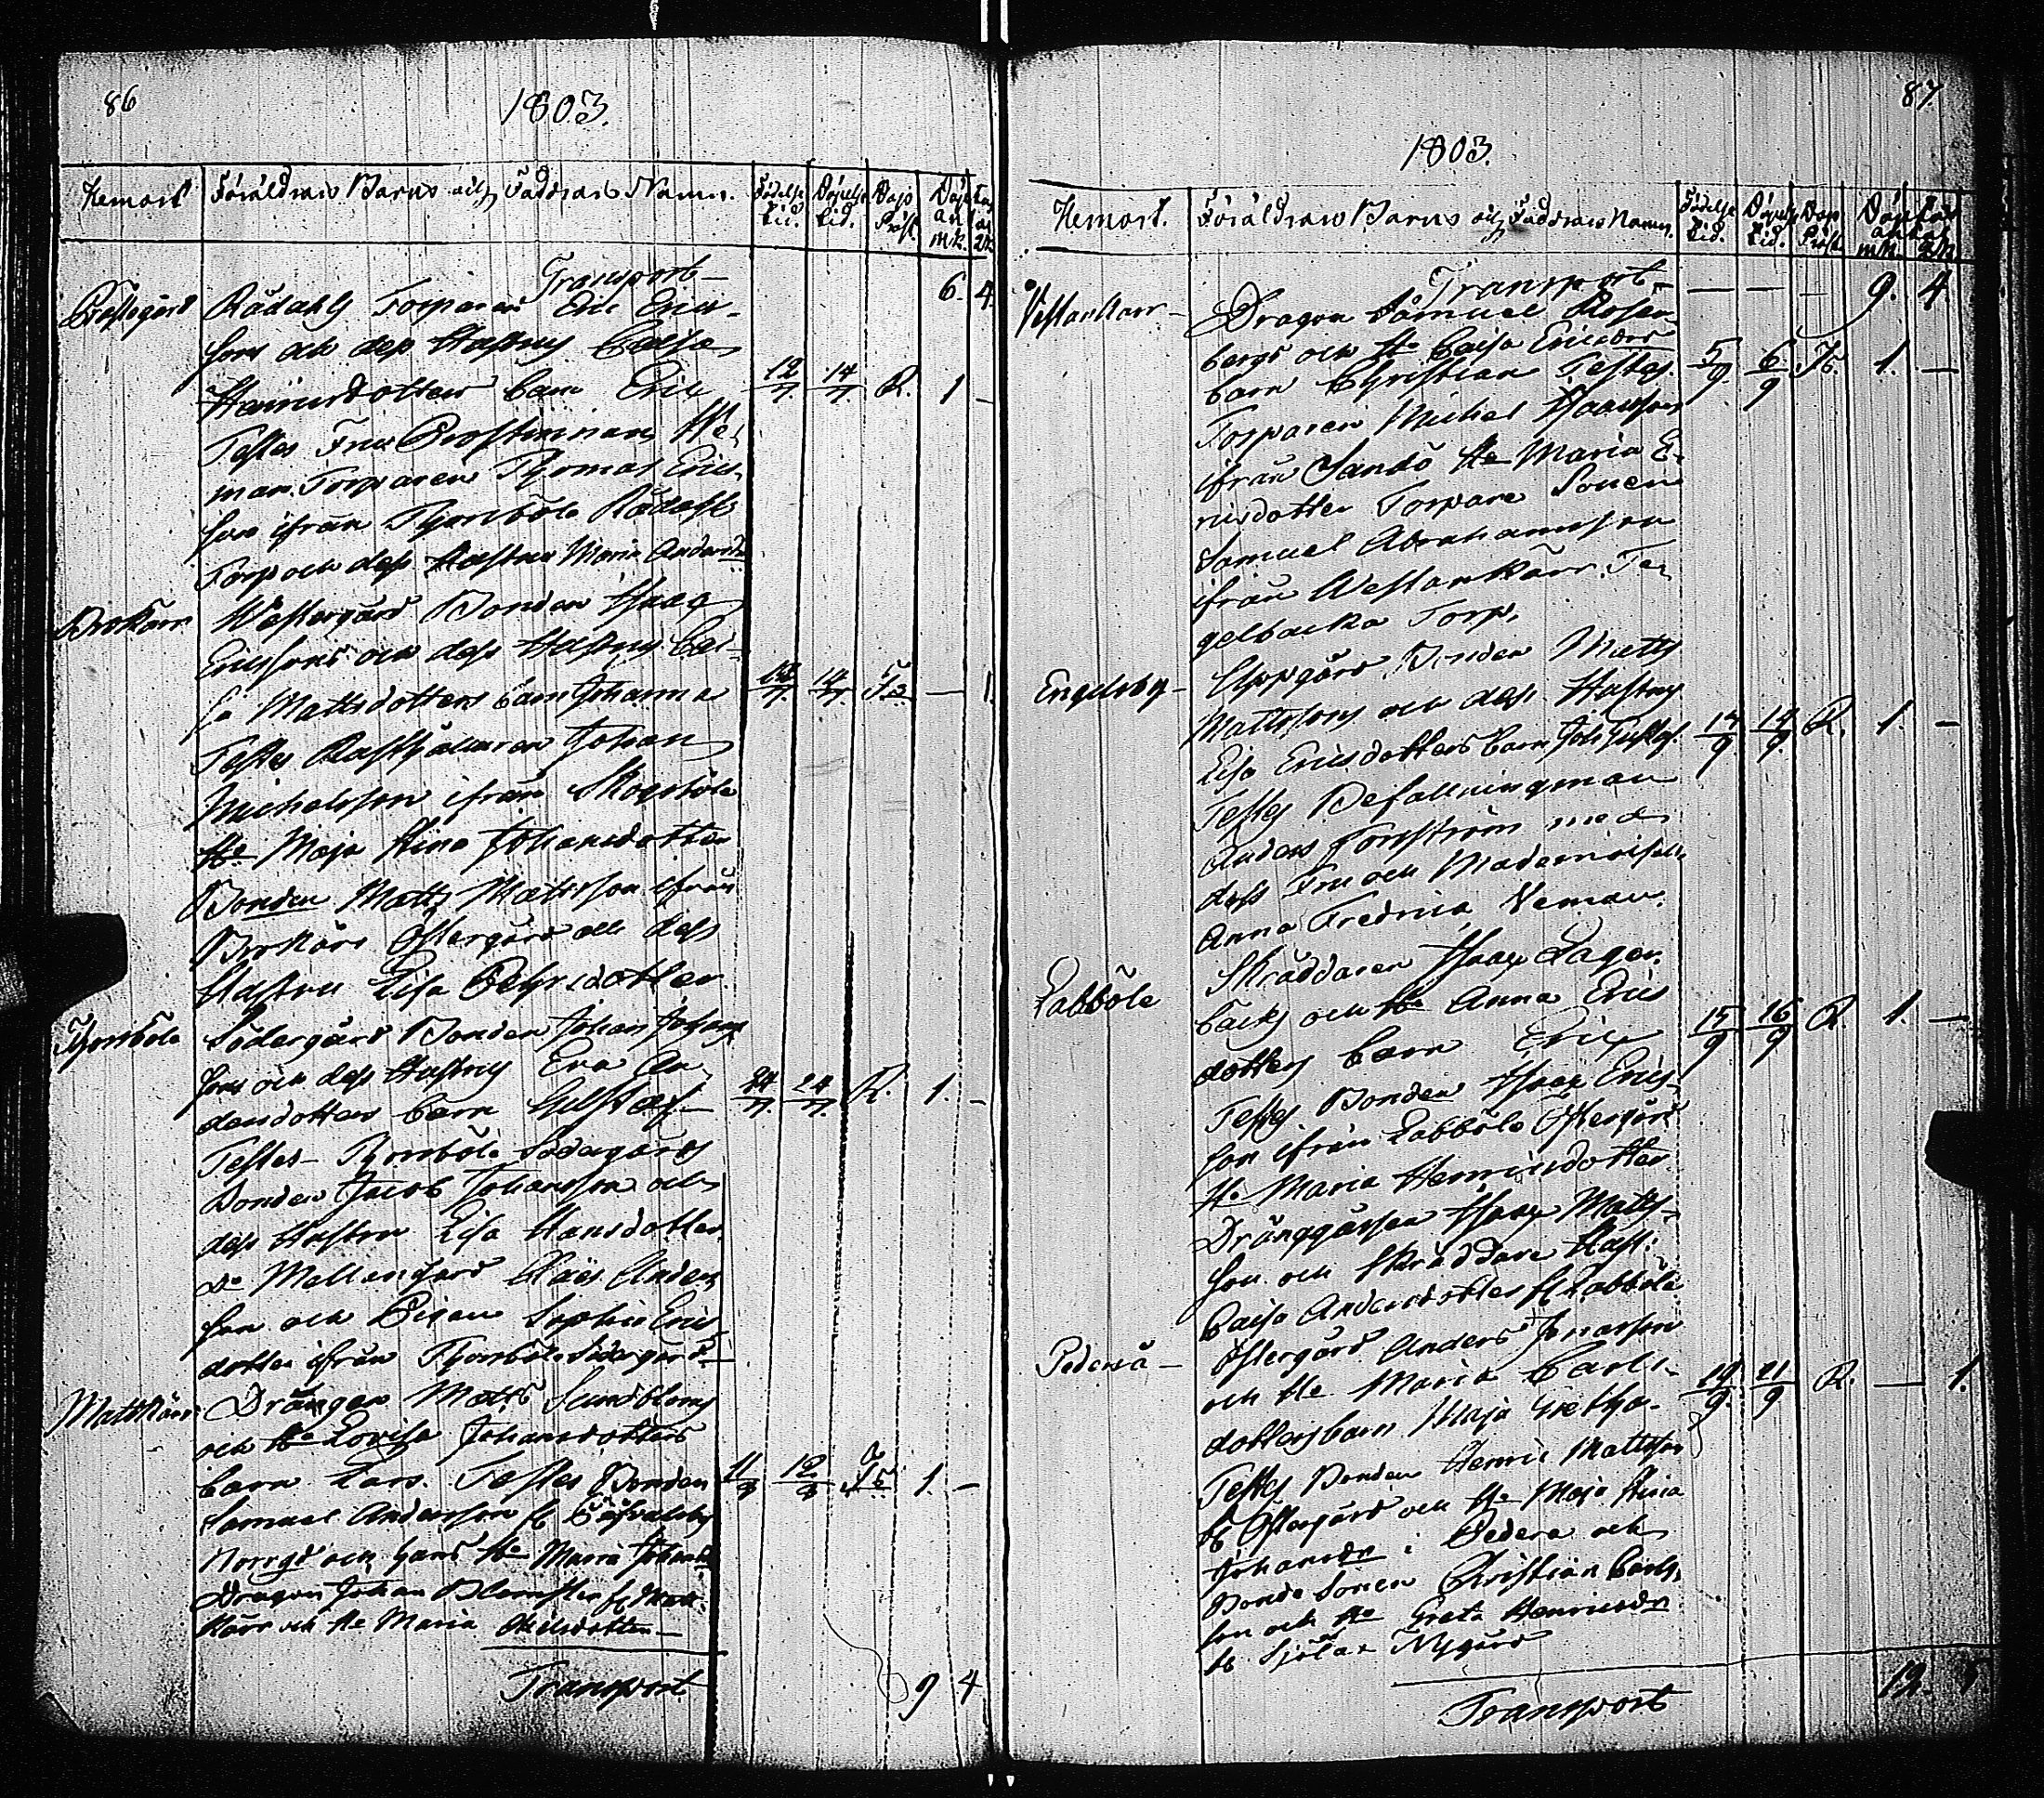 86
1803.
Hemort Föräldrars Barns och Faddrars Namn. Födelse tid. Döpelse tid. Döp Präst. Döpt an mk. an qk.
Transport 6. 4
Prästegård Rådahls Torparen Eric Erics-
sons och dess Hustrus Caisa
Henricsdotters barn Eric 12/7. 14/7. R. 1 –
Testes Fru Prostinnan We-
man. Torparen Thomas Erics-
son ifrån Thorsböle Rådahls
Torp och dess Hustru Maria Andersdr
Brokärr Westergård Bonden Isaac
Ericssons och dess Hustrus Cai-
sa Mattsdotters barn Johanna 13/7. 14/7. — 1.
Testes Rusthållaren Johan
Michelsson ifrån Skogsböle
Hu Maja Stina Johansdotter
Bonden Matts Mattsson ifrån
Brokärr Östergård och dess
Hustru Lisa Pehrsdotter.
Thorsböle Södergård Bonden Johan Johans-
sons och dess Hustrus Eva An-
dersdotters barn Gustaf 24/7. 24/7. R. 1. –
Testes – Thorsböle Södergårds
Bonden Jacob Johansson och
dess Hustru Lisa Hansdotter.
Do Mellangård Anders-
son och Pigan Sophia Erics-
dotter ifrån Thorsböle Södergård
Mattkärr Drängen Matts Sundbloms
och Hu Lovisa Johansdotters
barn Lars. Testes Bonden 11/8 12/8 1. –
Samuel Andersson fr
Norrgd och hans Hu Maria Johansdr
Dragon Johan fr Matt-
kärr och Hu Maria
Transport 9 4
87
1803.
Hemort. Föräldrars Barns och Faddrars Namn. Födelse tid. Döpelse tid. Döp Präst. Döpt antal mk. qk.
Transport — — — 9. 4
Vestankärr – Dragon Samuel Rosen-
bergs och Hu Caisa Ericsdrs
barn Christian Testes 5/9. 6/9 1. —
Torparen Michel Isacsson
ifrån Sandö Hu Maria E-
ricsdotter Torpare Sonen
Samuel Abrahamsson
ifrån Westankärr Te-
gelbacka Torp.
Engelsby – Uppgård Bonden Matts
Mattssons och dess Hustrus
Lisa Ericsdotters barn Joh: Gustaf. 14/9 14/9. R. 1. –
Testes Befallningsman
Anders Forsström med
dess Fru och Mademoiselle
Anna Fredrica Neman.
Labböle Skräddaren Isaac Lager-
backs och Hu Anna Erics
dotters barn Eric 15/9 16/9 R. 1. —
Testes Bonden Isaac Erics-
son ifrån Labböle Östergård
Hu Maria Henricsdotter
Dränggåssen Isaac Matts-
son och Skräddare Hust:
Caisa Andersdotter fr Labböle
Pederså – Östergård Anders Jonasson
och Hu Maria Carls-
dotters barn Maja Gretha. 19/9. 21/9 R. — 1.
Testes Bonden Henric Mattsson
fr Östergård och Hu Maja Stina
Johansdr i Pederså och
Bonde Sonen Christian Carls-
son och Hu Greta Henricsdr
fr Sjölax Nygård
Transport 12. 5